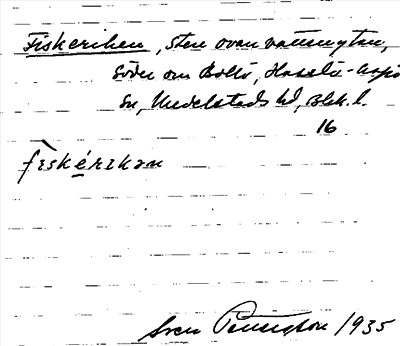 Fiskeriken, sten ovan vattenytan,
söder om Boltö, Hasslö-Aspö
sn, Medelstads hd, Blek. l.
16
fìskérikan
Sven Bengtsson 1935